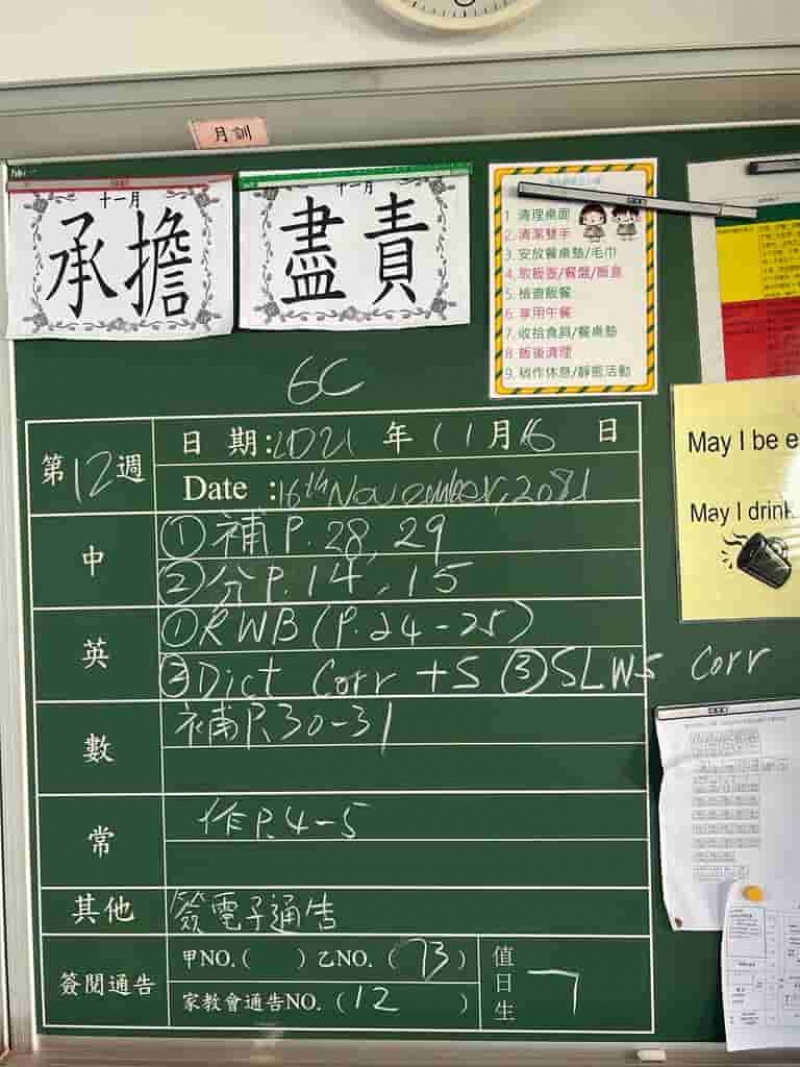 月訓
十一月
承擔
十一月
盡責
1 清理桌面
2. 清潔雙手
3. 安放餐桌墊/毛巾
4. 取飯壺/餐盤/飯盒
5. 檢查飯餐
6. 享用午餐
7. 收拾食具/餐桌墊
8. 飯後清理
9. 稍作休息/靜態活動
6C
May I be e
May I drink
第12週
日 期:2021 年 11月16 日
Date :16th November, 2021
中
①補 P.28, 29
②分 P.14, 15
英
①RWB (P.24-25)
②Dict Corr +S ③SLW5 Corr
數
補P.30-31
常
作P.4-5
其他
簽電子通告
簽閱通告
甲NO.( ) 乙NO. (73)
家教會通告NO. (12 )
值日生
7